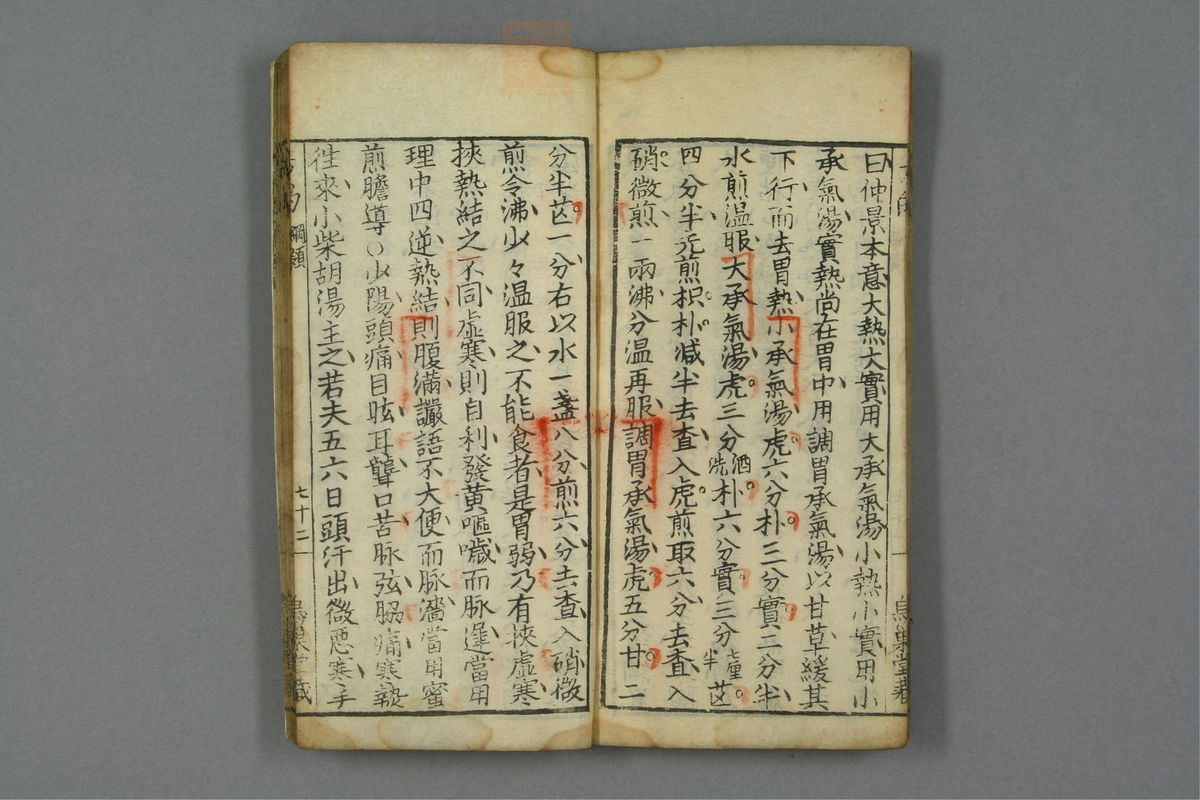 曰仲景本意大熱大實用大承氣湯小熱小實用小
承氣湯實熱尚在胃中用調胃承氣湯以甘草緩其
下行而去胃熱小承氣湯虎六分朴三分實二分半
水煎温服大承氣湯虎三分酒洗朴六分實三分七厘半芒
四分半先煎枳朴減半去査入虎煎取六分去査入
硝微煎一兩沸分温再服調胃承氣湯虎五分甘二
分半芒一分右以水一盞八分煎六分去査入硝微
煎令沸少々温服之不能食者是胃弱乃有挾虛寒
挾熱結之不同虛寒則自利發黃嘔噦而脉遲當用
理中四逆熱結則腹滿讝語不大便而脉濇當用蜜
煎膽導○少陽頭痛目眩耳聾口苦脉弦脇痛寒熱
徃來小柴胡湯主之若夫五六日頭汗出微惡寒手
綱領
七十二